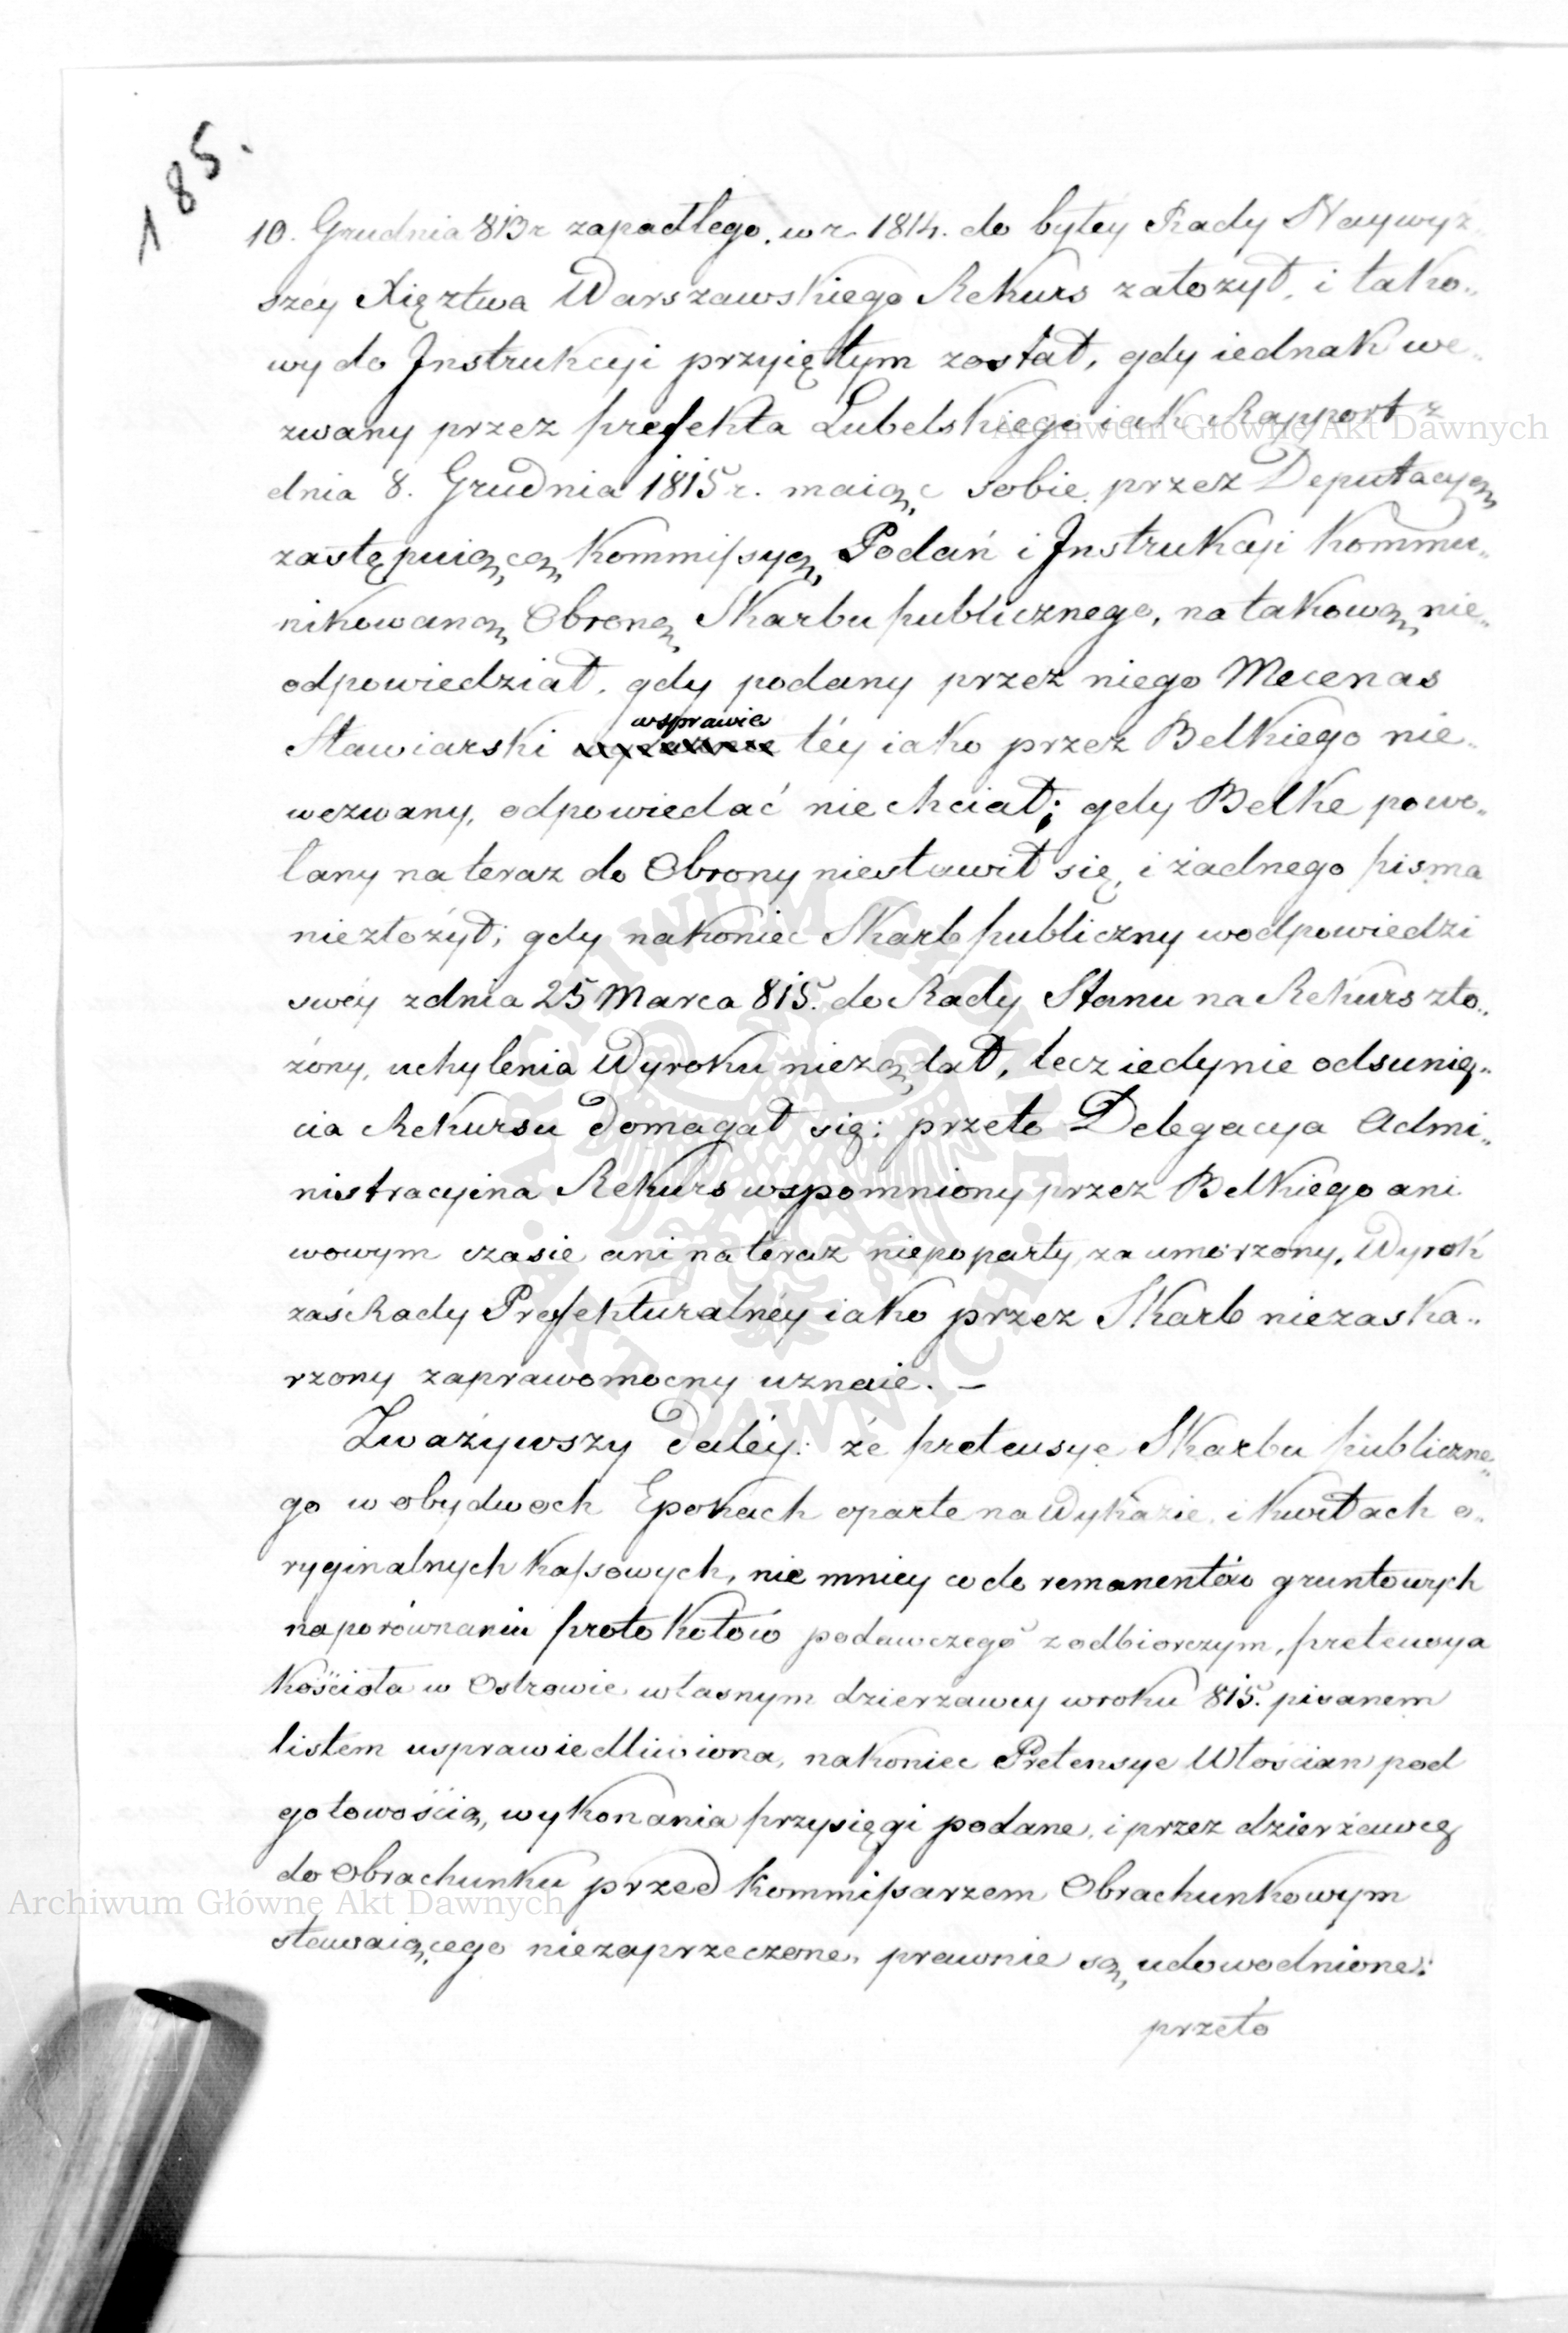 185.
10. Grudnia 813r zapadłego, w r. 1814. do byłéy Rady Naywyż„
széy Xięztwa Warszawskiego Rekurs założył, i tako„
wy do Instrukcyi przyiętym został, gdy iednak we„
zwany przez prefekta Lubelskiego iak Rapport z
dnia 8. Grudnia 1815r. maiąc sobie przez Deputacyą
zastępuiącą Kommissyą Podań i Instrukcyi Kommu„
nikowaną Obronę Skarbu publicznego, na takową nie„
odpowiedział, gdy podany przez niego Mecenas
wsprawie
Sławiarski téy iako przez Belkiego nie„
wezwany, odpowiedać niechciał; gdy Belke powo„
łany na teraz do Obrony niestawił się, i żadnego pisma
niezłożył; gdy nakoniec Skarb publiczny wodpowiedzi
swéy zdnia 25 Marca 815. do Rady Stanu na Rekurs zło„
żony, uchylenia Wyroku nieżądał, lecz iedynie odsunię„
cia Rekursu domagał się: przeto Delegacya Admi„
nistracyina Rekurs wspomniony przez Belkiego ani
wowym czasie ani na teraz niepoparty, za umorzony, Wyrok
zaś Rady Prefekturalnéy iako przez Skarb niezaska„
rzony zaprawomocny uznaie. —
Zważywszy daléy: że pretensye Skarbu publiczne„
go w obydwoch Epokach oparte na Wykazie i kwitach o„
ryginalnych kassowych, nie mniey co do remanentów gruntowych
na porównaniu protokołów podawczego z odbiorczym, pretensya
Kościoła w Ostrowie własnym dzierzawcy wroku 815. pisanem
listem usprawiedliwiona, nakoniec Pretensye Włościan pod
gotowością wykonania przysięgi podane, i przez dzierżawcę
do Obrachunku przed Kommissarzem Obrachunkowym
stawaiącego niezaprzeczone, prawnie są udowodnione:
przeto
Archiwum Główne Akt Dawnych
Archiwum Główne Akt Dawnych
ARCHIWUM GŁÓWNE AKT DAWNYCH